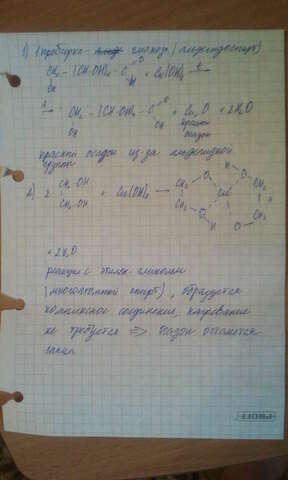 1) 1 пробирка - глюкоза (альдегидоспирт)
CH₂ - (CH-OH)₄ - C =O H + Cu(OH)₂ t→
OH
t→ CH₂ - (CH-OH)₄ - C =O OH + Cu₂O + 2H₂O
OH красный
осадок
красный осадок из-за альдегидной
группы
2 CH₂-OH CH₂-OH + Cu(OH)₂ → CH₂ O H O CH₂
CH₂ O H Cu O CH₂
+ 2H₂O
реакция с этилен-гликолем
(многоатомный спирт), образуется
комплексное соединение, нагревание
не требуется => раствор остается
PROFF